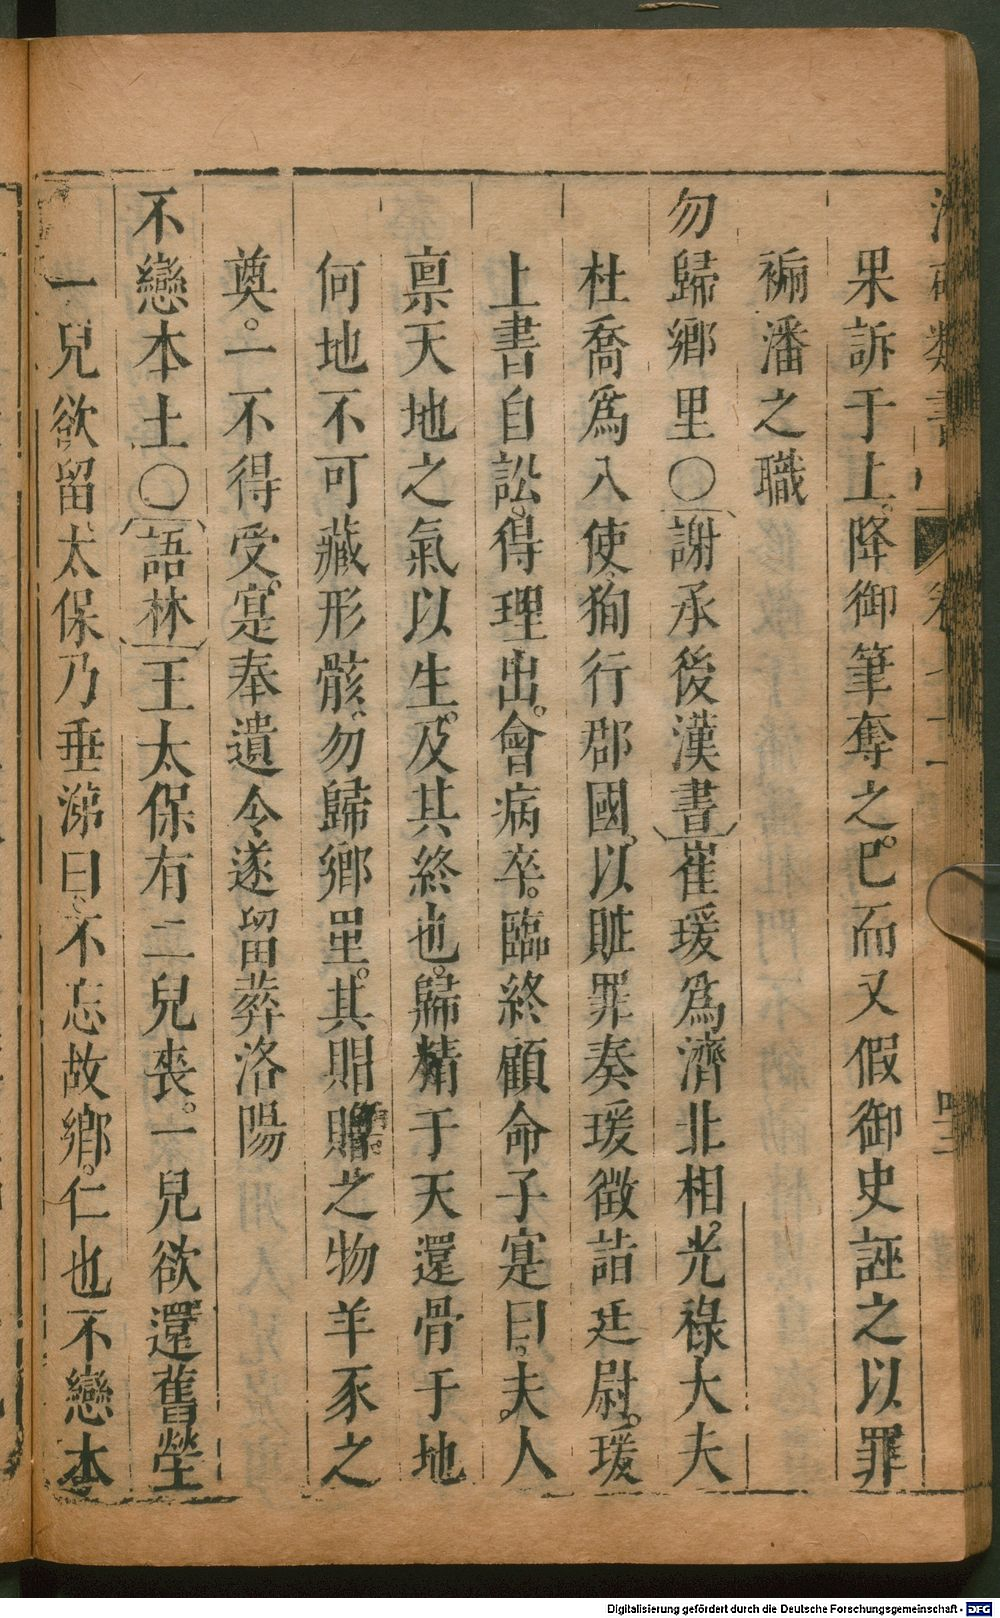 果訴于上降御筆奪之已而又假御史誣之以罪
褫潘之職
勿歸鄉里〇謝承後漢書崔瑗爲濟北相光祿大夫
杜喬爲八使狥行郡國以賍罪奏瑗徵詣廷尉瑗
上書自訟得理出會病卒臨終顧命子寔曰夫人
禀天地之氣以生及其終也歸精于天還骨于地
何地不可藏形骸勿歸鄉里其賵贈之物羊豕之
奠一不得受寔奉遺令遂留葬洛陽
不戀本土〇語林王太保有二兒喪一兒欲還舊塋
一兒欲留太保乃垂涕曰不忘故鄉仁也不戀本
Digitalisierung gefördert durch die Deutsche Forschungsgemeinschaft - DFG